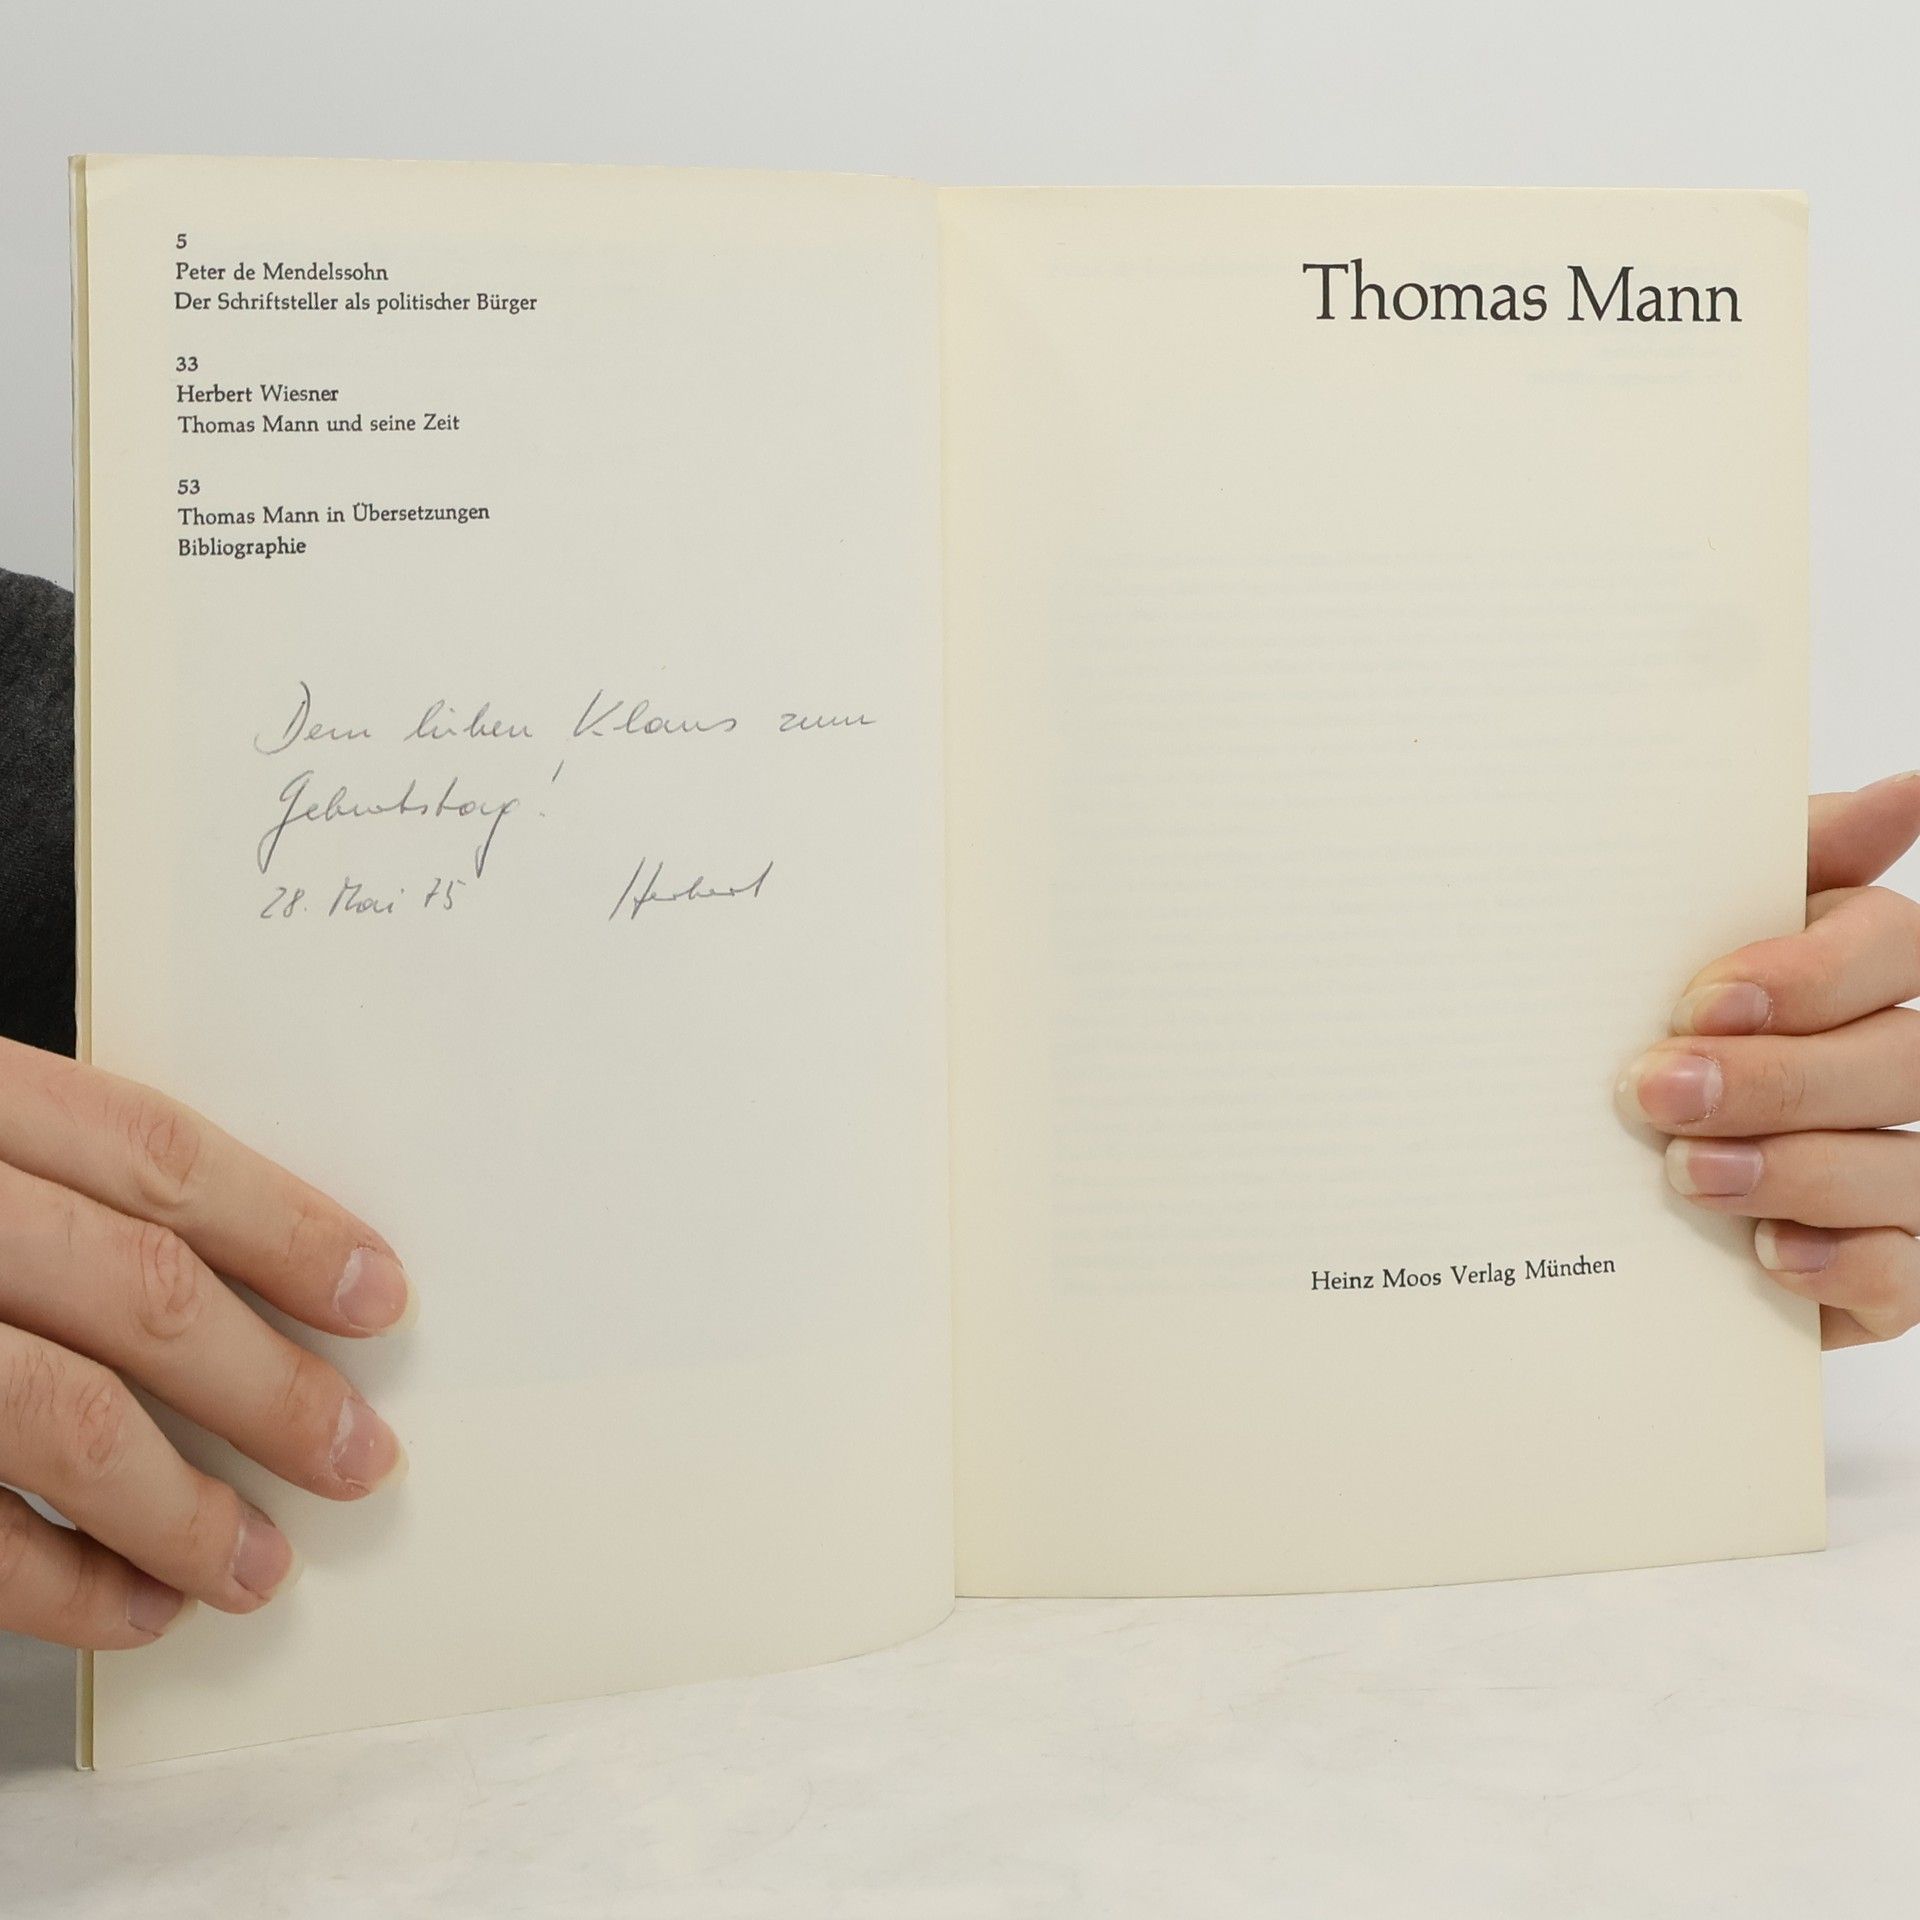 5
Peter de Mendelssohn
Der Schriftsteller als politischer Bürger
33
Herbert Wiesner
Thomas Mann und seine Zeit
53
Thomas Mann in Übersetzungen
Bibliographie
Dem lieben Klaus zum
Geburtstag!
28. Mai 75 Herbert
Thomas Mann
Heinz Moos Verlag München